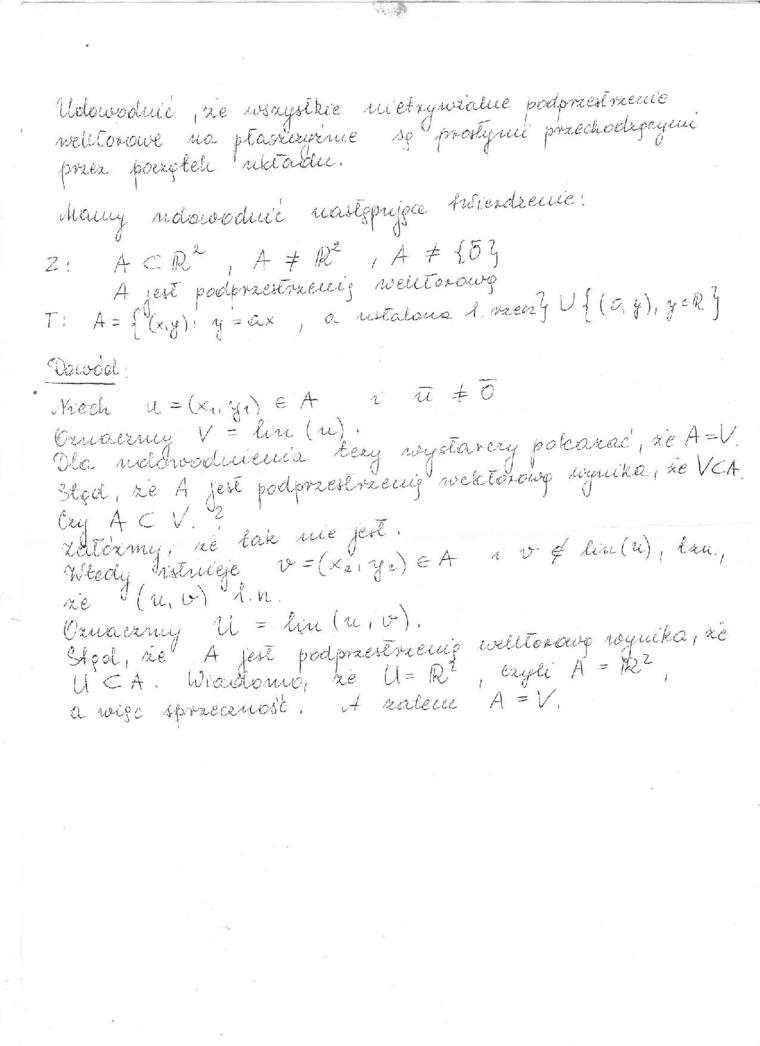 Udowodnić, że wszystkie nietrywialne podprzestrzenie
wektorowe na płaszczyźnie są prostymi przechodzącymi
przez początek układu.
Mamy udowodnić następujące twierdzenie:
Z: A ⊂ ℝ², A ≠ ℝ², A ≠ {0̄}
A jest podprzestrzenią wektorową
T: A = {(x,y): y = ax, a ustalona l. rzecz} ∪ {(0, y), y∈ℝ}
Dowód:
Niech u = (x₁, y₁) ∈ A i ū ≠ 0̄
Oznaczmy V = lin (u).
Dla udowodnienia tezy wystarczy pokazać, że A = V.
Stąd, że A jest podprzestrzenią wektorową wynika, że V⊂A.
Czy A ⊂ V. ?
Załóżmy, że tak nie jest.
Wtedy istnieje v = (x₂, y₂) ∈ A i v ∉ lin (u), tzn.,
że (u, v) l.n.
Oznaczmy U = lin (u, v).
Stąd, że A jest podprzestrzenią wektorową wynika, że
U ⊂ A. Wiadomo, że U = ℝ², czyli A = ℝ²,
a więc sprzeczność. A zatem A = V.